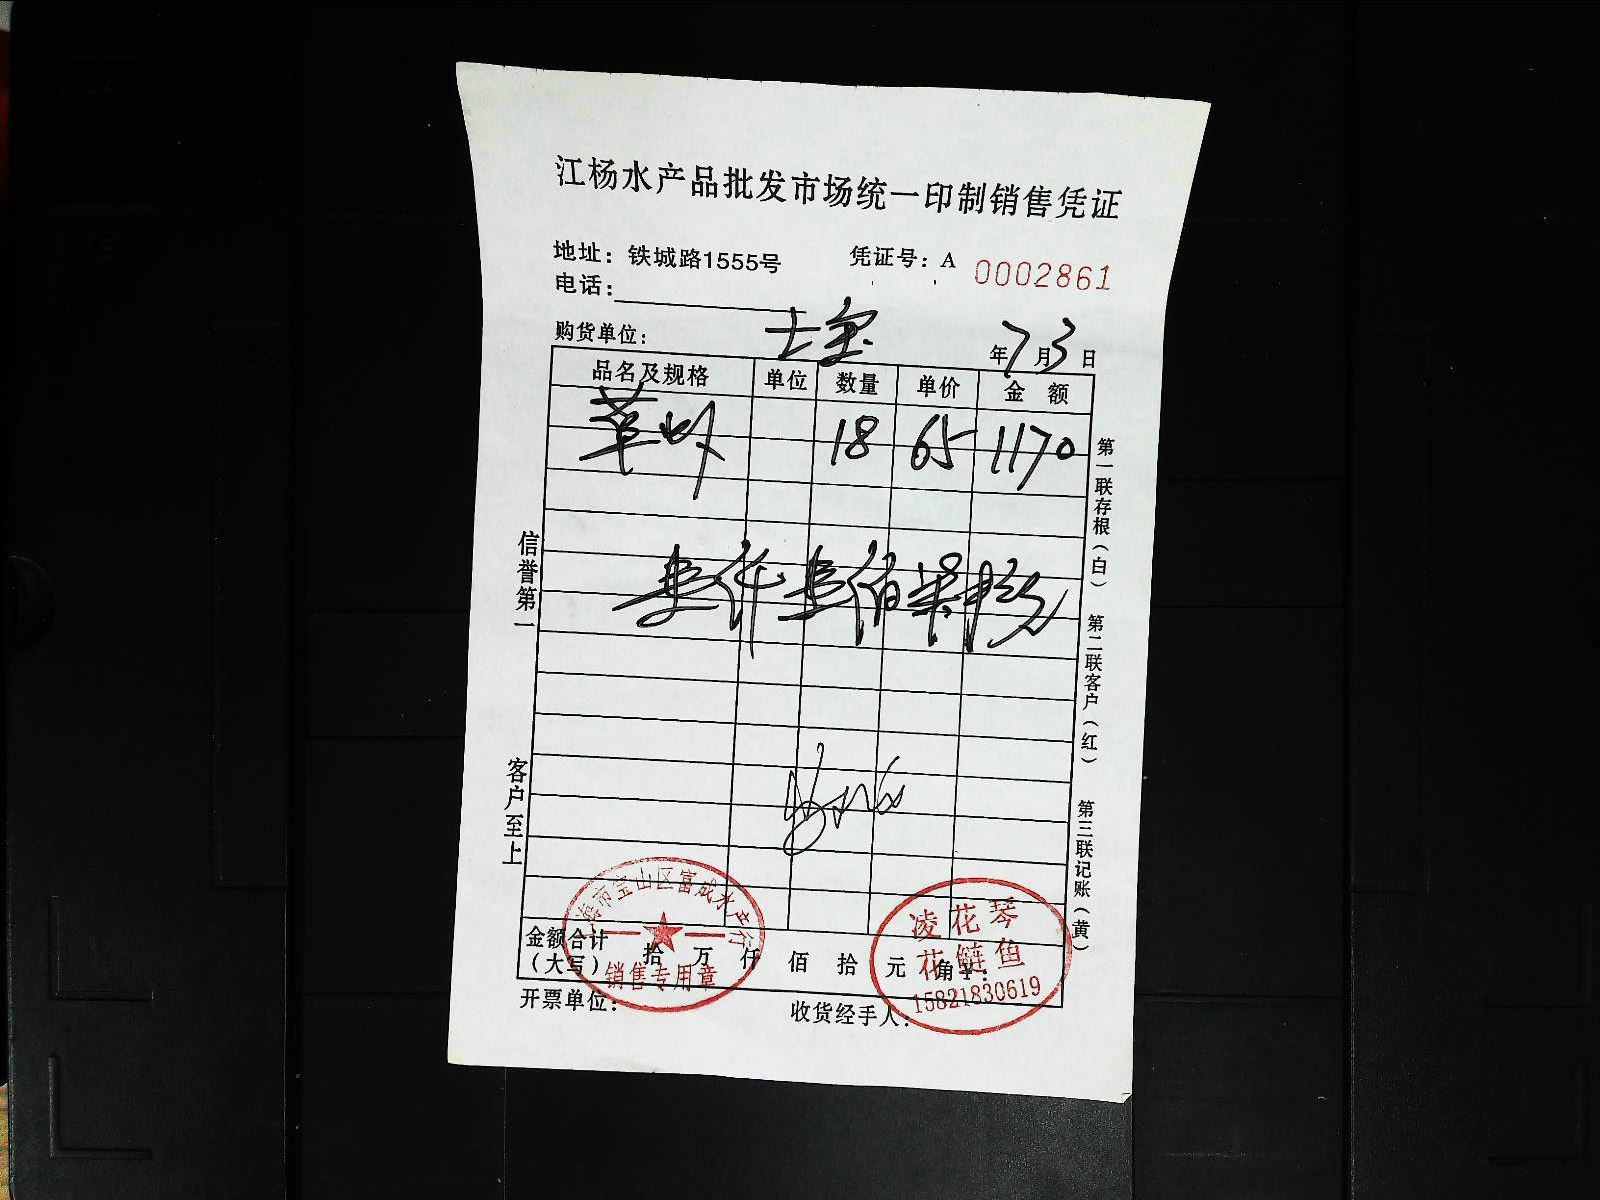 江杨水产品批发市场统一印制销售凭证
地址：铁城路1555号 凭证号：A 0002861
电话：
购货单位： 年7月3日
品名及规格 单位 数量 单价 金 额
18 65 1170
壹仟壹佰柒拾
信誉第一
客户至上
第一联存根（白）
第二联客户（红）
第三联记账（黄）
海市宝山区富成水产行
销售专用章
凌花琴
花鲢鱼
15821830619
金额合计（大写） 拾 万 仟 佰 拾 元 角
开票单位： 收货经手人：